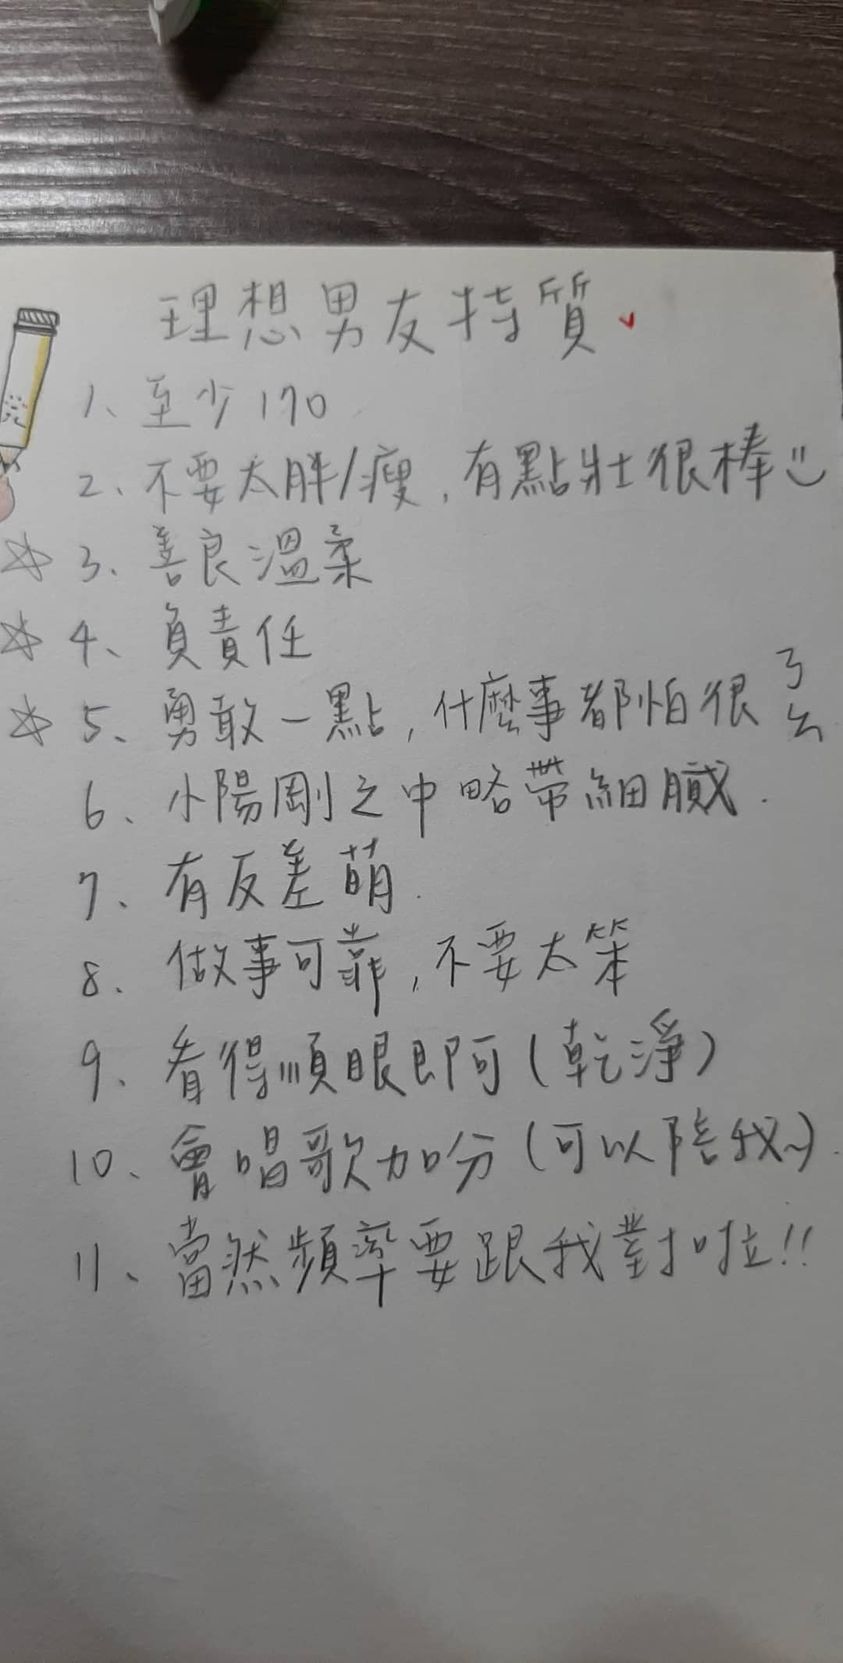 理想男友特質
1、至少170
2、不要太胖/瘦,有點壯很棒
☆3、善良溫柔
☆4、負責任
☆5、勇敢一點,什麼事都怕很ㄋㄠ
6、小陽剛之中略帶細膩.
7、有反差萌.
8、做事可靠,不要太笨
9、看得順眼即可(乾淨)
10、會唱歌加分(可以陪我~).
11、當然頻率要跟我對啦!!